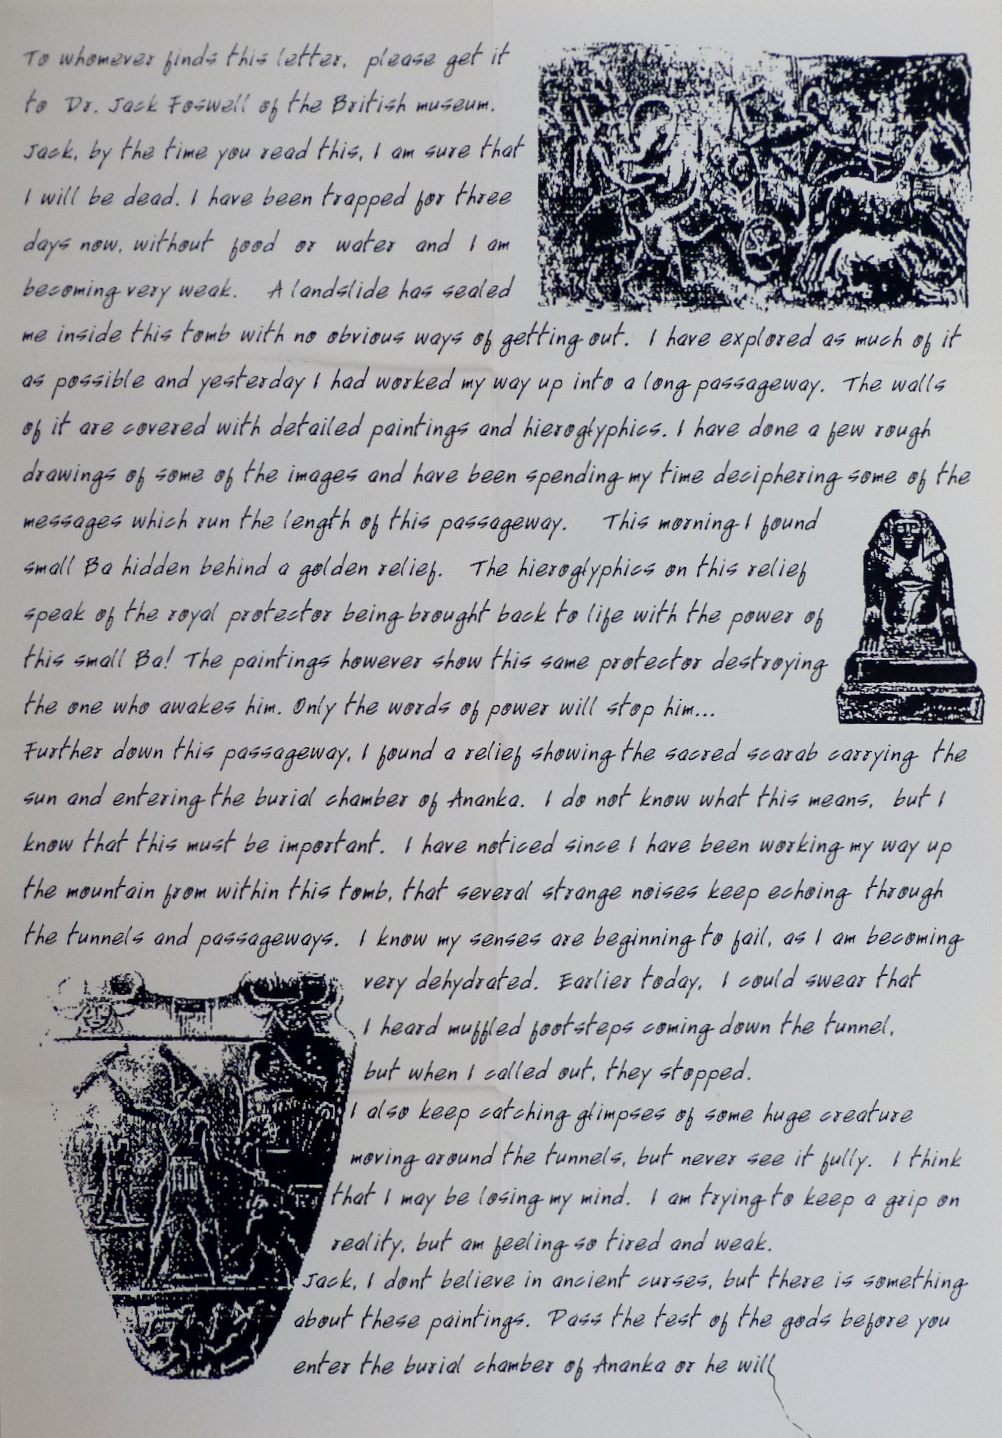 To whomever finds this letter, please get it
to Dr. Jack Foswell of the British museum.
Jack, by the time you read this, I am sure that
I will be dead. I have been trapped for three
days now, without food or water and I am
becoming very weak. A landslide has sealed
me inside this tomb with no obvious ways of getting out. I have explored as much of it
as possible and yesterday I had worked my way up into a long passageway. The walls
of it are covered with detailed paintings and hieroglyphics. I have done a few rough
drawings of some of the images and have been spending my time deciphering some of the
messages which run the length of this passageway. This morning I found
small Ba hidden behind a golden relief. The hieroglyphics on this relief
speak of the royal protector being brought back to life with the power of
this small Ba! The paintings however show this same protector destroying
the one who awakes him. Only the words of power will stop him...
Further down this passageway, I found a relief showing the sacred scarab carrying the
sun and entering the burial chamber of Ananka. I do not know what this means, but I
know that this must be important. I have noticed since I have been working my way up
the mountain from within this tomb, that several strange noises keep echoing through
the tunnels and passageways. I know my senses are beginning to fail, as I am becoming
very dehydrated. Earlier today, I could swear that
I heard muffled footsteps coming down the tunnel,
but when I called out, they stopped.
I also keep catching glimpses of some huge creature
moving around the tunnels, but never see it fully. I think
that I may be losing my mind. I am trying to keep a grip on
reality, but am feeling so tired and weak.
Jack, I dont believe in ancient curses, but there is something
about these paintings. Pass the test of the gods before you
enter the burial chamber of Ananka or he will